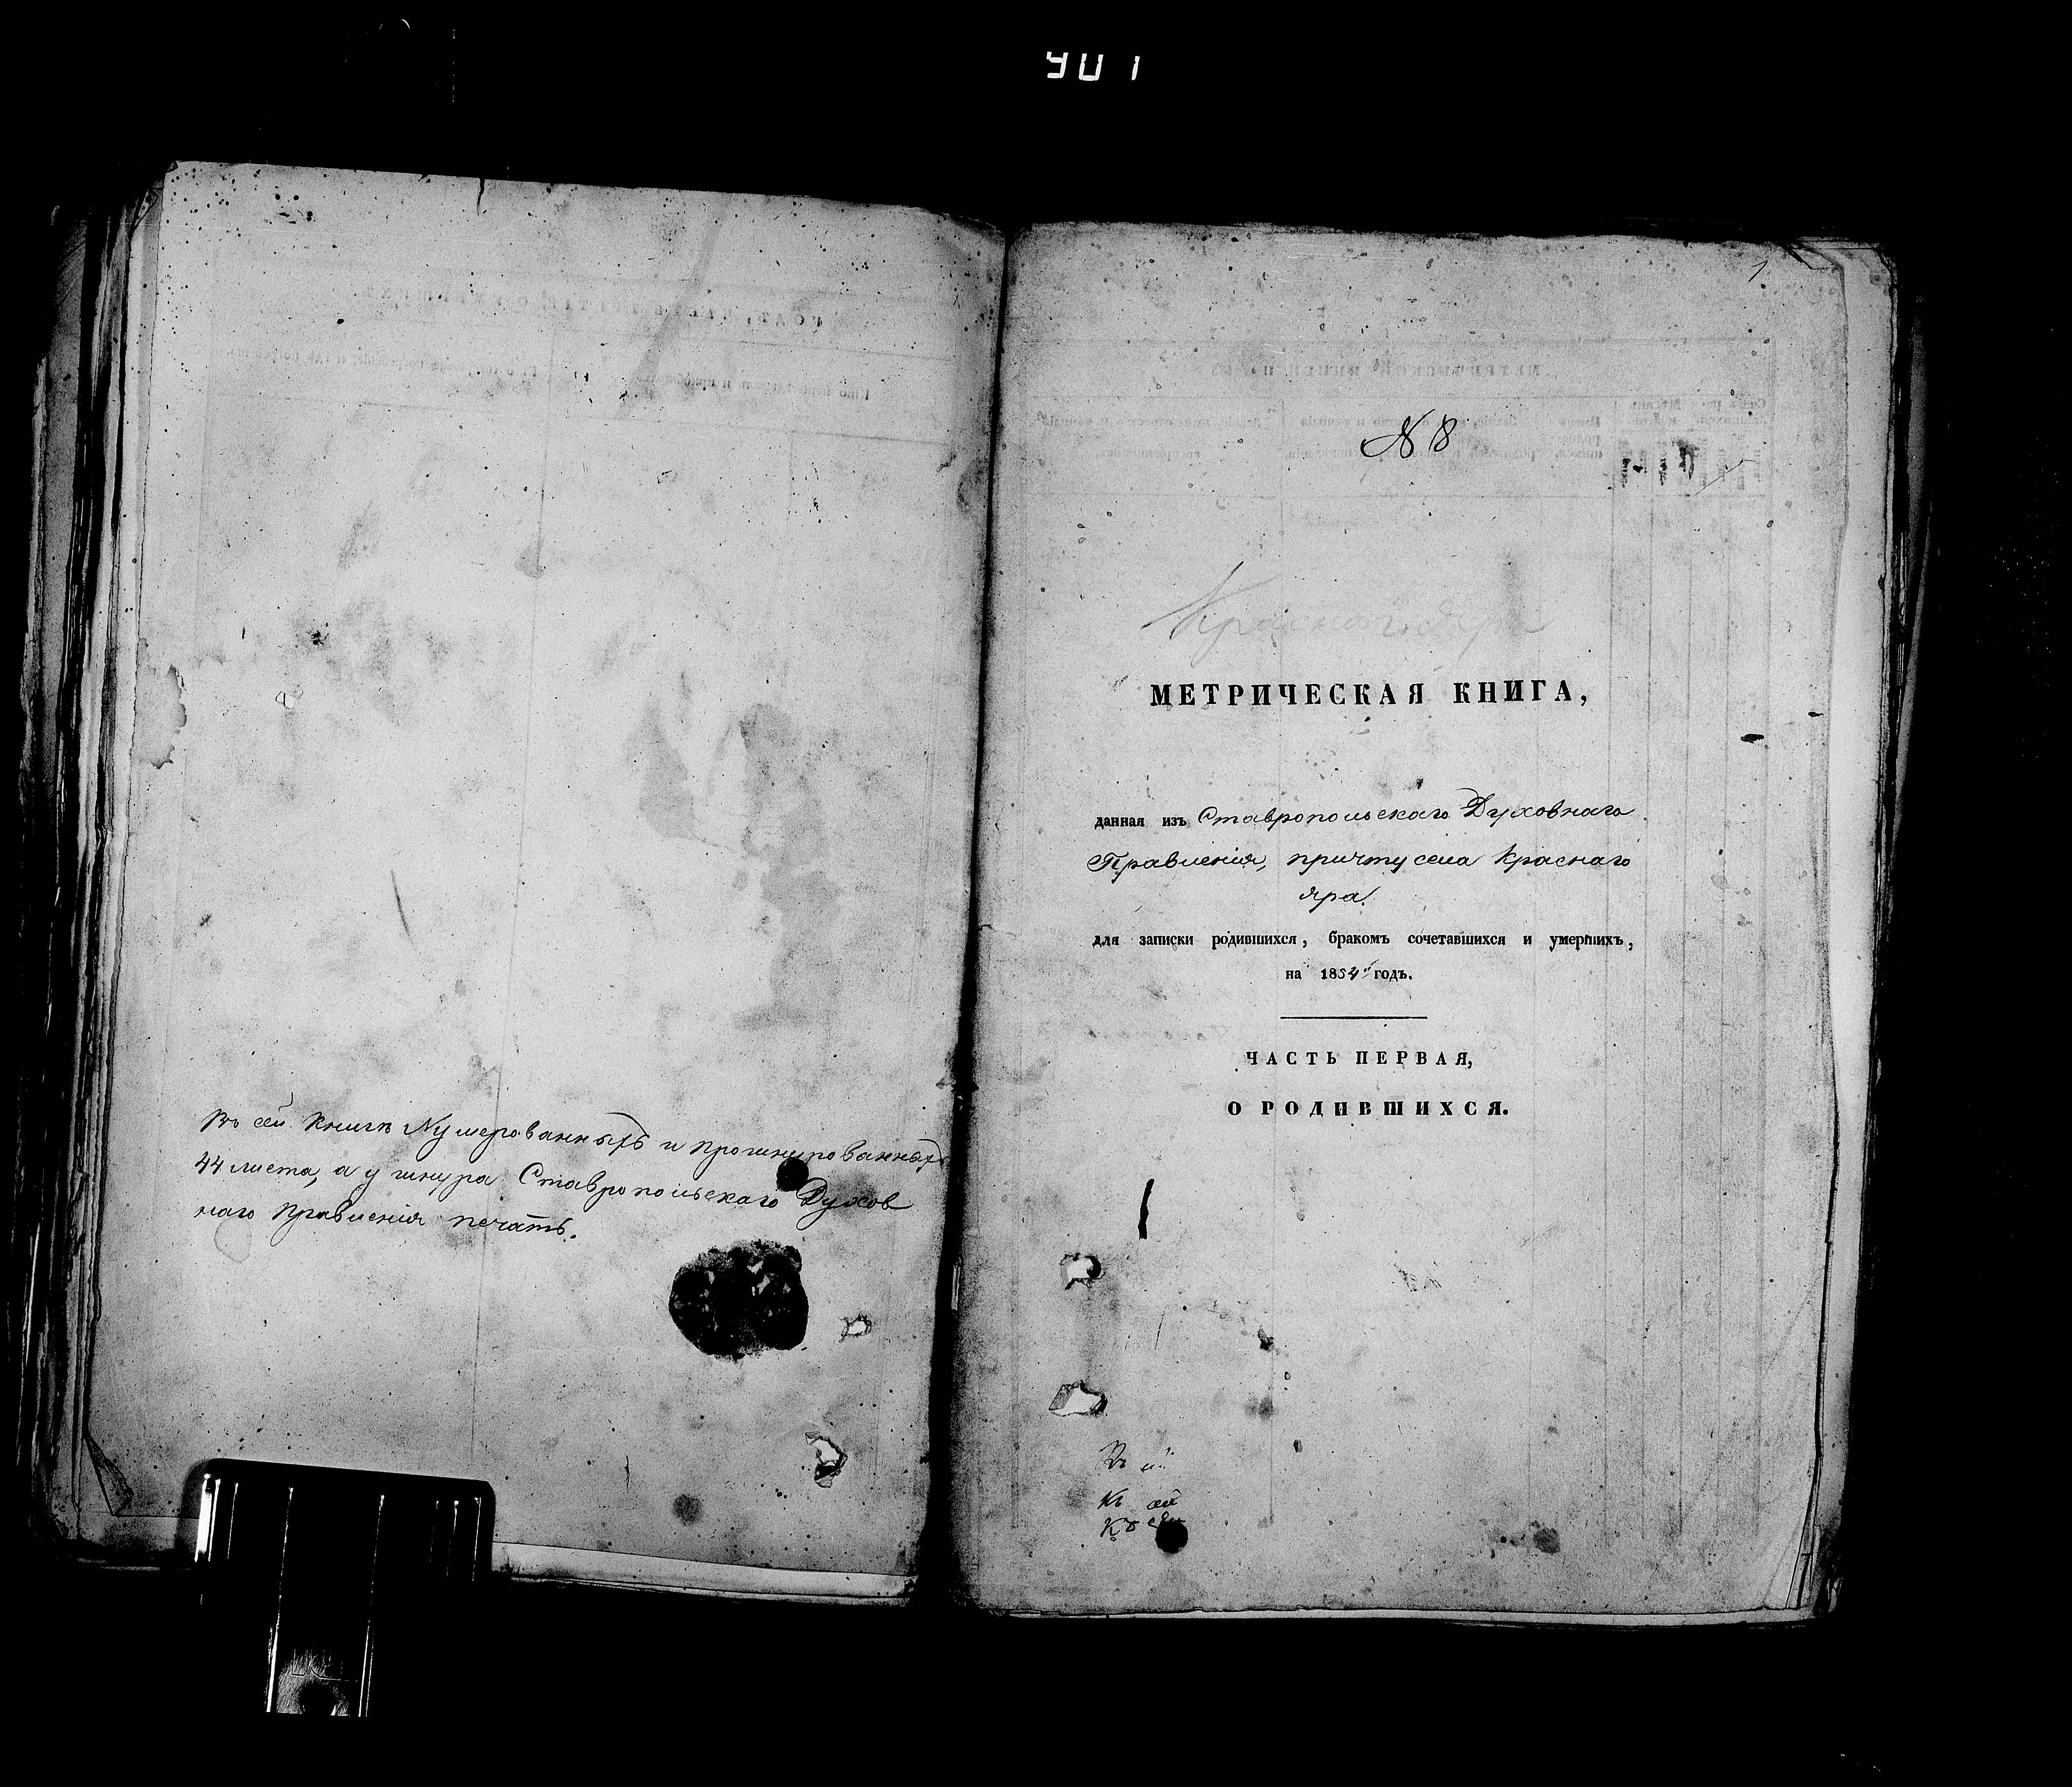 901
Въ сей книгѣ Нумерованныхъ и прошнурованныхъ
44 листа, а у шнура Ставропольскаго Духов
наго Правленія печать.
1
№ 8
Краснаго яра
МЕТРИЧЕСКАЯ КНИГА,
данная изъ Ставропольскаго Духовнаго
Правленія, причту села Краснаго
яра.
для записки родившихся, бракомъ сочетавшихся и умершихъ,
на 1854й годъ.
ЧАСТЬ ПЕРВАЯ,
О РОДИВШИХСЯ.
Къ сей